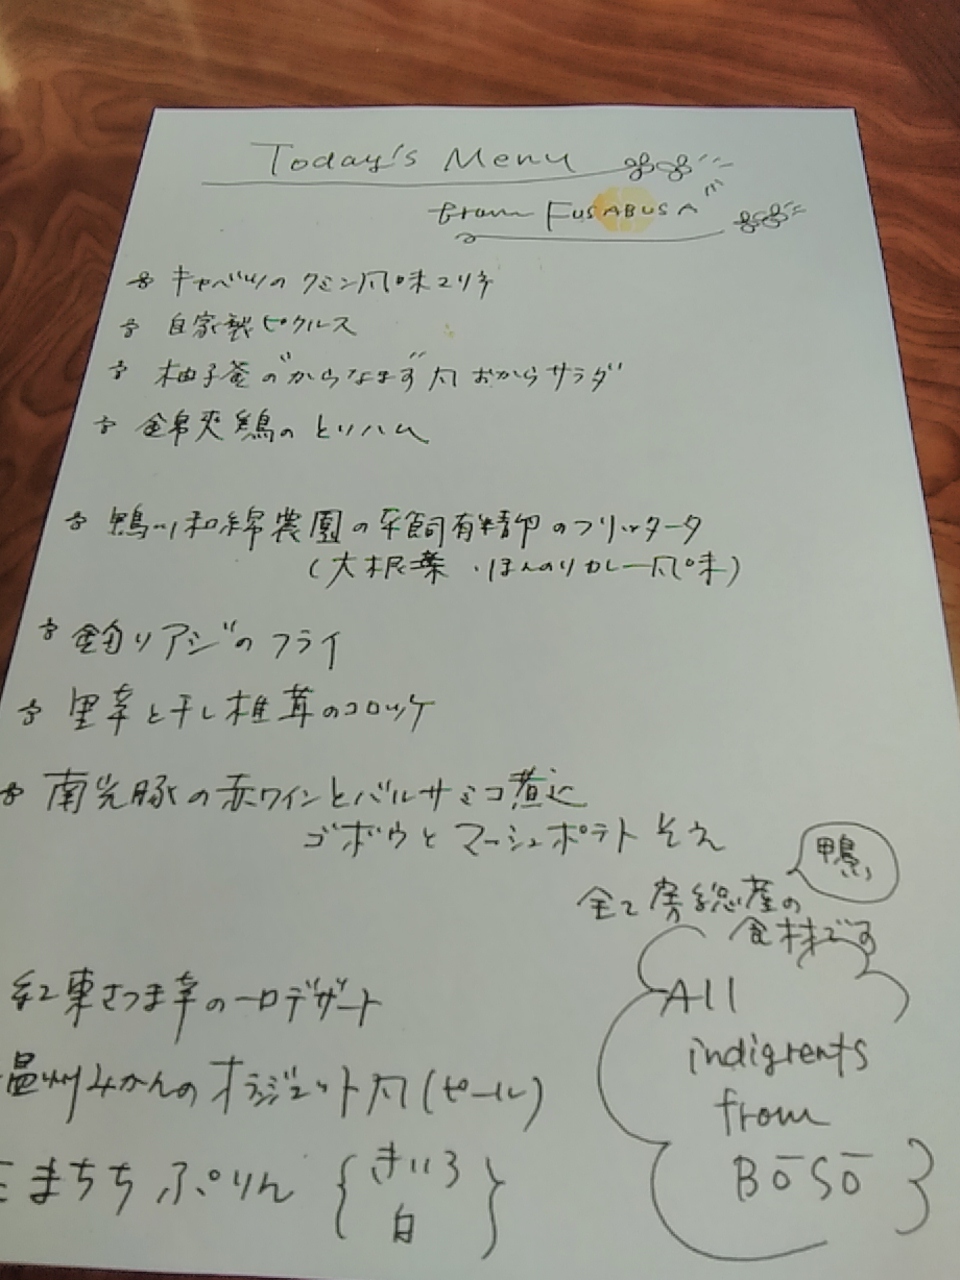 Today's Menu
from FUSABUSA
キャベツのクミン風味マリネ
自家製ピクルス
柚子釜の"からなます"風おからサラダ
錦爽鶏のとりハム
鴨川和綿農園の平飼有精卵のフリッタータ
(大根葉・ほんのりカレー風味)
釣りアジのフライ
里芋と干し椎茸のコロッケ
南光豚の赤ワインとバルサミコ煮込
ゴボウとマッシュポテトそえ
鴨川
全て房総産の
食材です
紅東さつま芋の一口デザート
温州みかんのオランジェット風(ピール)
まちちぷりん { きいろ
白 }
All
indigrents
from
BōSō